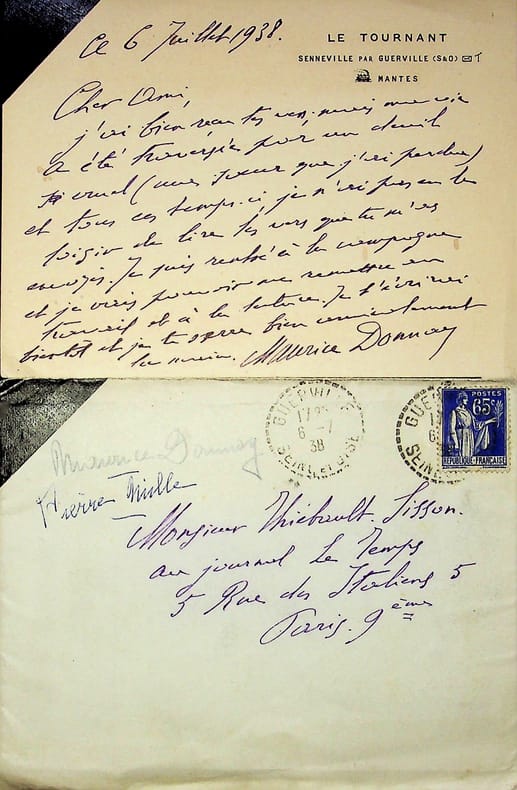 Ce 6 Juillet 1938.
LE TOURNANT
SENNEVILLE PAR GUERVILLE (S&O)
MANTES
Cher Ami,
j'ai bien reçu tes vers. mais ma vie
a été traversée par un deuil
cruel (une soeur que j'ai perdue)
et tous ces temps-ci je n'ai pas eu le
loisir de lire les vers que tu m'as
envoyés. Je suis rentré à la campagne
et je vais pouvoir me remettre au
travail et à la lecture. Je t'écrirai
bientôt et je te serre bien amicalement
la main. Maurice Donnay
GUERVILLE
17
6 -7
38
SEINE-ET-OISE
GUE
1
6
SEINE
POSTES
65c
REPUBLIQUE FRANÇAISE
Maurice Donnay
Pierre Mille
Monsieur Thiébault. Sisson.
au journal Le Temps
5 Rue des Italiens 5
Paris. 9ème